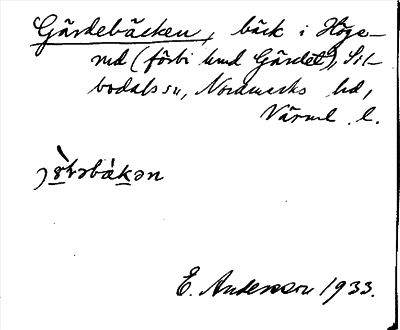 Gärdebäcken, bäck i Höge-
rud (förbi hmd Gärdet), Sil-
bodals sn, Nordmarks hd,
Värml. l.
E. Andersson 1933.